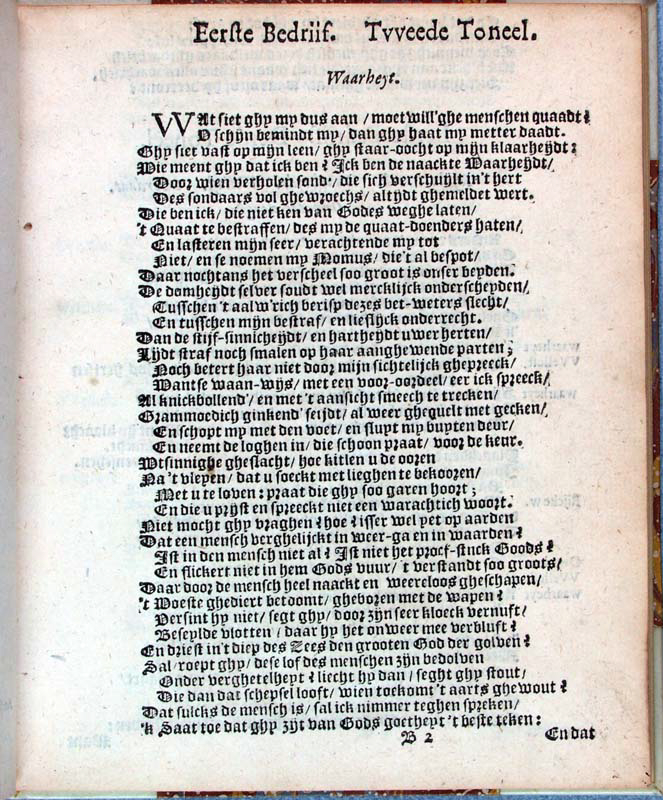 Eerste Bedriif. Tvveede Toneel.
Waarheyt.
WAt siet ghy my dus aan / moetwill'ghe menschen quaadt?
O schijn bemindt my / dan ghy haat my metter daadt.
Ghy siet vast op mijn leen / ghy staar-oocht op mijn klaarheydt:
Wie meent ghy dat ick ben? Ick ben de naackte Waarheydt /
Door wien verholen sond' / die sich verschuylt in't hert
Des sondaars vol ghewroechs / altijdt ghemeldet wert.
Die ben ick / die niet ken van Godes weghe laten /
't Quaat te bestraffen / des my de quaat-doenders haten /
En lasteren mijn seer / verachtende my tot
Niet / en se noemen my Momus / die't al bespot /
Daar nochtans het verscheel soo groot is onser beyden.
De domheydt selver soudt wel mercklijck onderscheyden /
Tusschen 't aalw'rich berisp dezes bet-weters slecht /
En tusschen mijn bestraf / en lieflijck onderrecht.
Dan de stijf-sinnicheydt / en hartheydt uwer herten /
Lijdt straf noch smalen op haar aanghewende parten;
Noch betert haar niet door mijn sichtelijck ghepreeck /
Want se waan-wijs / met een voor-oordeel / eer ick spreeck /
Al knickbollend' / en met 't aansicht smeech te trecken /
Grammoedich ginkend' seijdt / al weer ghequelt met gecken /
En schopt my met den voet / en sluyt my buyten deur /
En neemt de loghen in / die schoon praat / voor de keur.
Wtsinnighe gheslacht / hoe kitlen u de ooren
Na 't vleyen / dat u soeckt met lieghen te bekooren /
Met u te loven: praat die ghy soo garen hoort;
En die u prijst en spreeckt niet een warachtich woort.
Niet mocht ghy vraghen? hoe? isser wel yet op aarden
Dat een mensch verghelijckt in weer-ga en in waarden?
Ist in den mensch niet al? Ist niet het proef-stuck Goods?
En flickert niet in hem Gods vuur / 't verstandt soo groots /
Daar door de mensch heel naackt en weereloos gheschapen /
't Woeste ghediert betoomt / gheboren met de wapen?
Versint hy niet / segt ghy / door zijn seer kloeck vernuft /
Beseylde vlotten / daar hy het onweer mee verbluft?
En driest in't diep des Zees den grooten God der golven?
Sal / roept ghy / dese lof des menschen zijn bedolven
Onder verghetelheyt? liecht hy dan / seght ghy stout /
Die dan dat schepsel looft / wien toekomt 't aarts ghewout?
Dat sulcks de mensch is / sal ick nimmer teghen spreken /
'k Saat toe dat ghy zijt van Gods goetheyt 't beste teken:
B 2 En dat